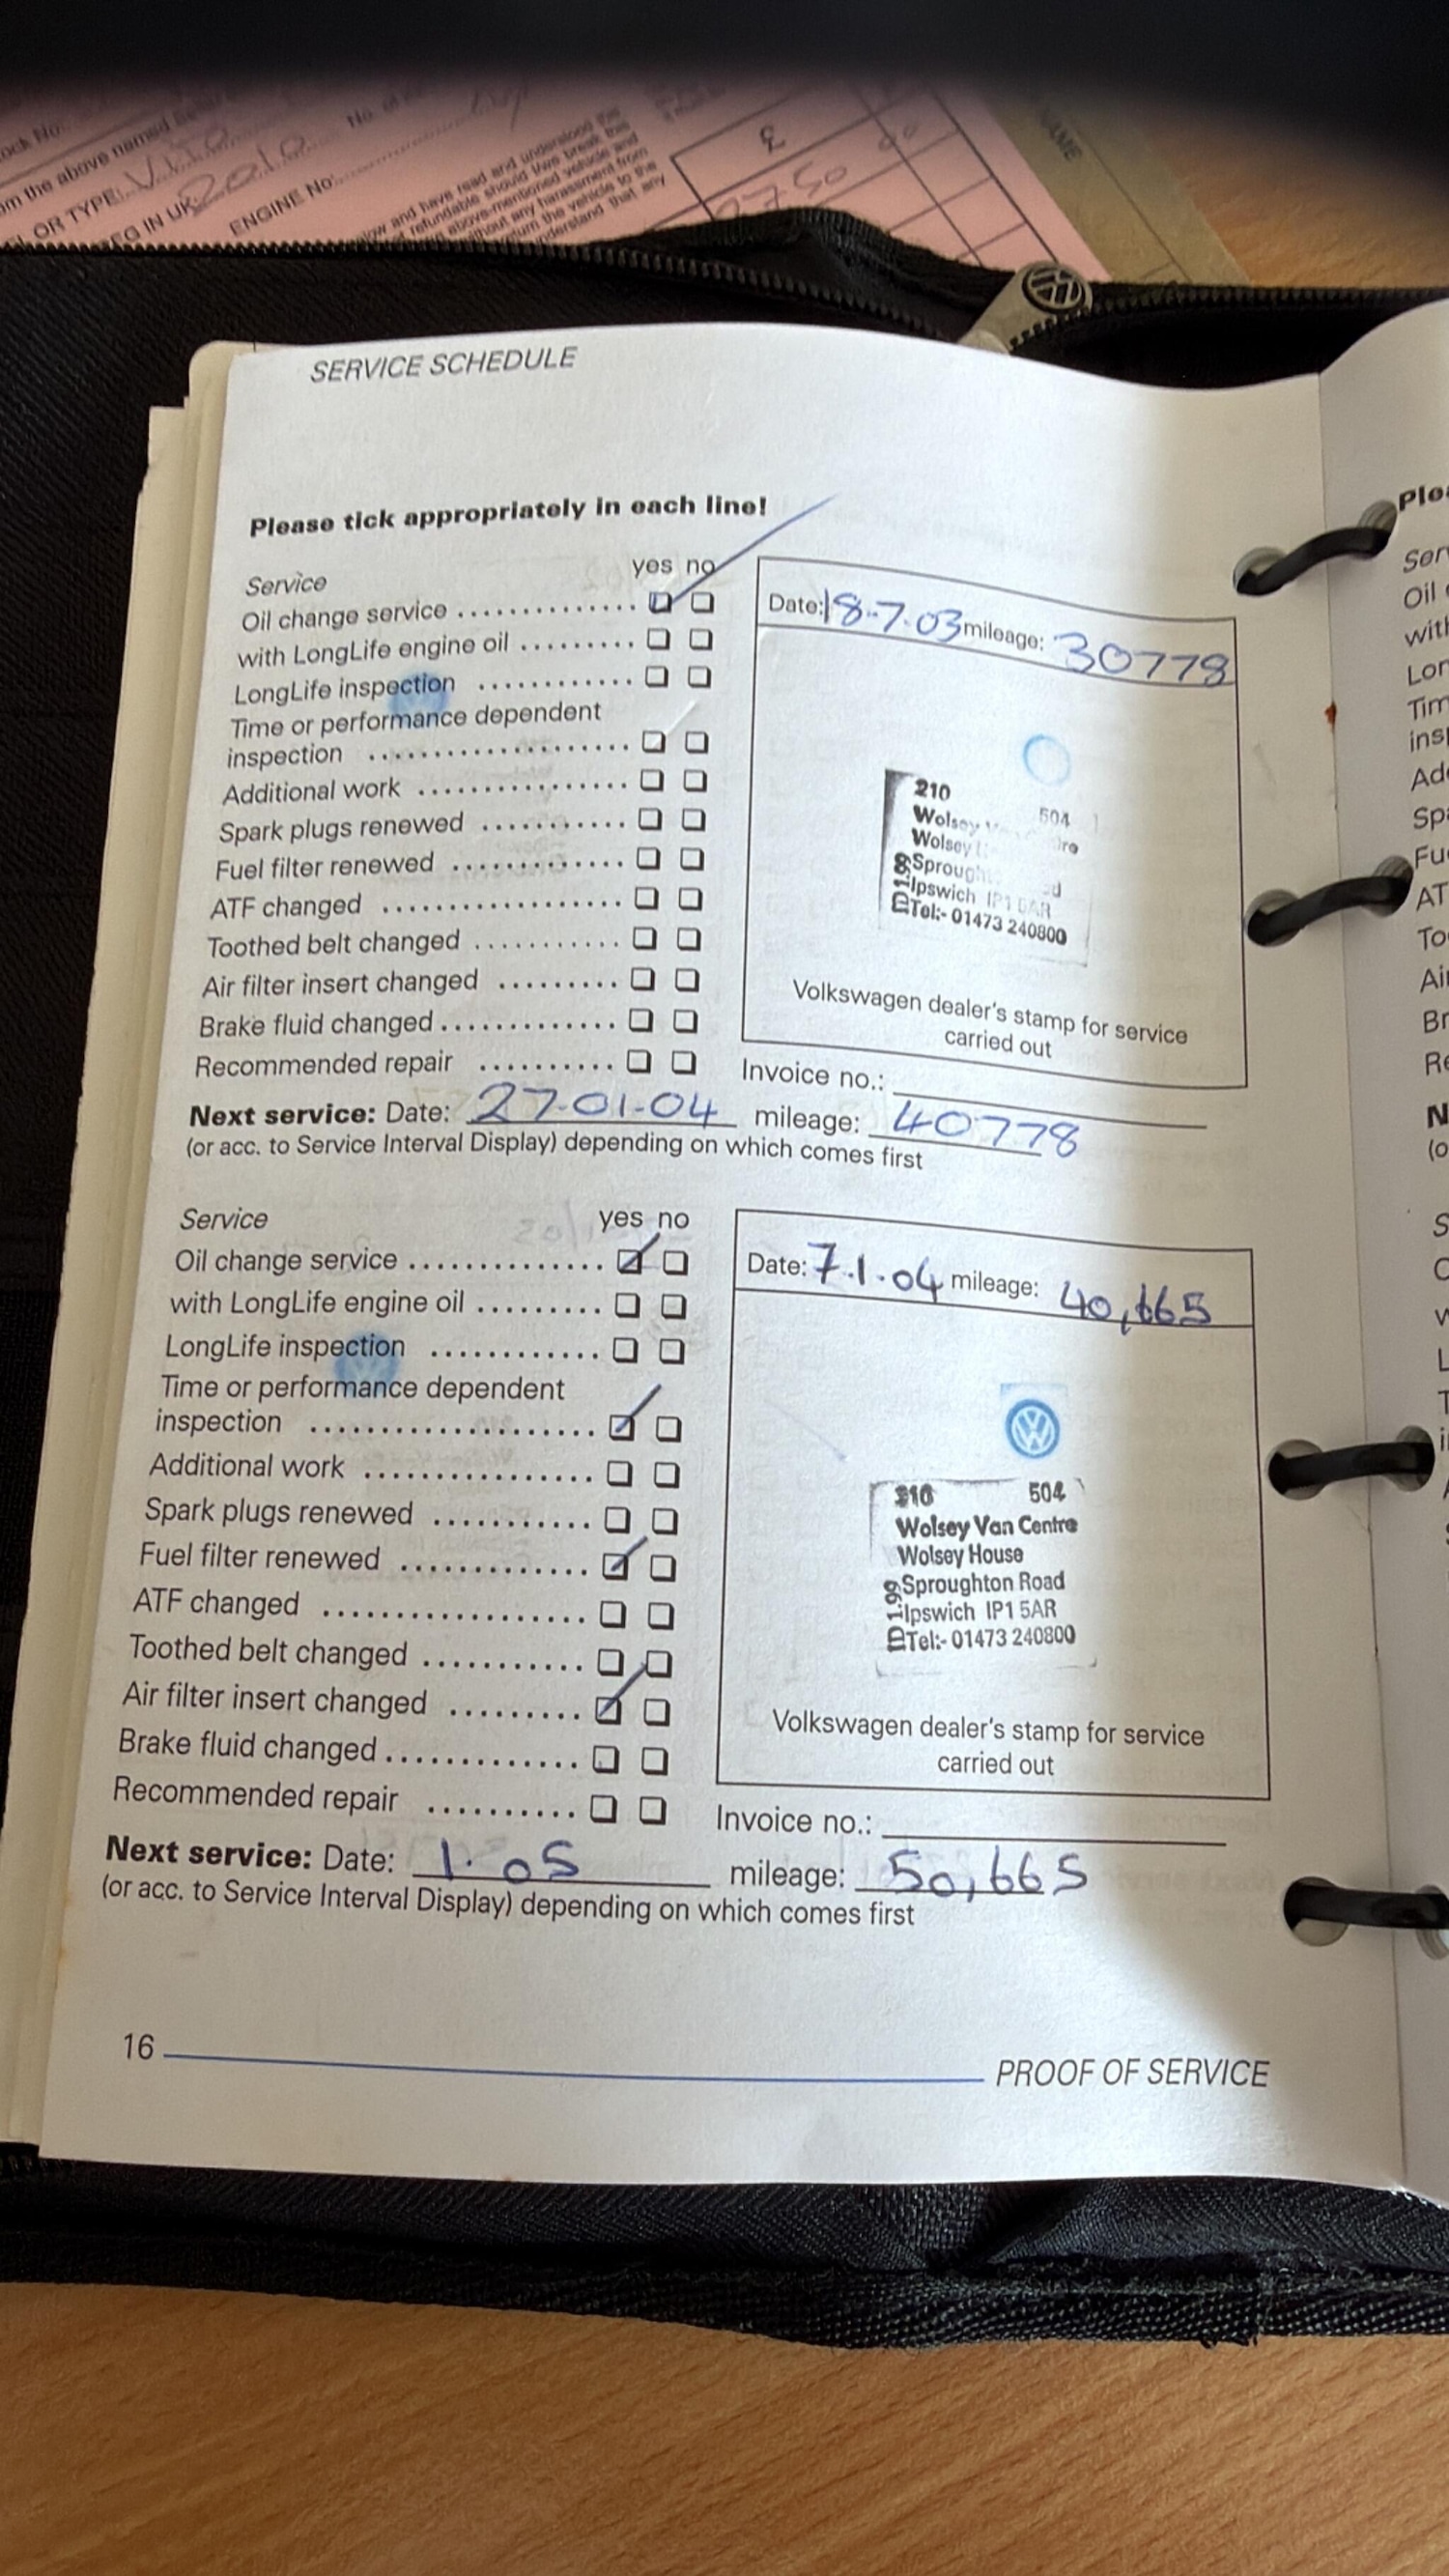 om the above named
OR TYPE: VITO
REG IN UK 2010
ENGINE No:
£
NAME
SERVICE SCHEDULE
Please tick appropriately in each line!
Service yes no
Oil change service
with LongLife engine oil
LongLife inspection
Time or performance dependent
inspection
Additional work
Spark plugs renewed
Fuel filter renewed
ATF changed
Toothed belt changed
Air filter insert changed
Brake fluid changed
Recommended repair
Date: 18.7.03 mileage: 30778
210 504
Wolsey
Wolsey
Sprough
Ipswich IP1 5AR
Tel:- 01473 240800
Volkswagen dealer's stamp for service
carried out
Invoice no.:
Next service: Date: 27-01-04 mileage: 40778
(or acc. to Service Interval Display) depending on which comes first
Service yes no
Oil change service
with LongLife engine oil
LongLife inspection
Time or performance dependent
inspection
Additional work
Spark plugs renewed
Fuel filter renewed
ATF changed
Toothed belt changed
Air filter insert changed
Brake fluid changed
Recommended repair
Date: 7.1.04 mileage: 40,665
210 504
Wolsey Van Centre
Wolsey House
Sproughton Road
Ipswich IP1 5AR
Tel:- 01473 240800
Volkswagen dealer's stamp for service
carried out
Invoice no.:
Next service: Date: 1.05 mileage: 50,665
(or acc. to Service Interval Display) depending on which comes first
16 PROOF OF SERVICE